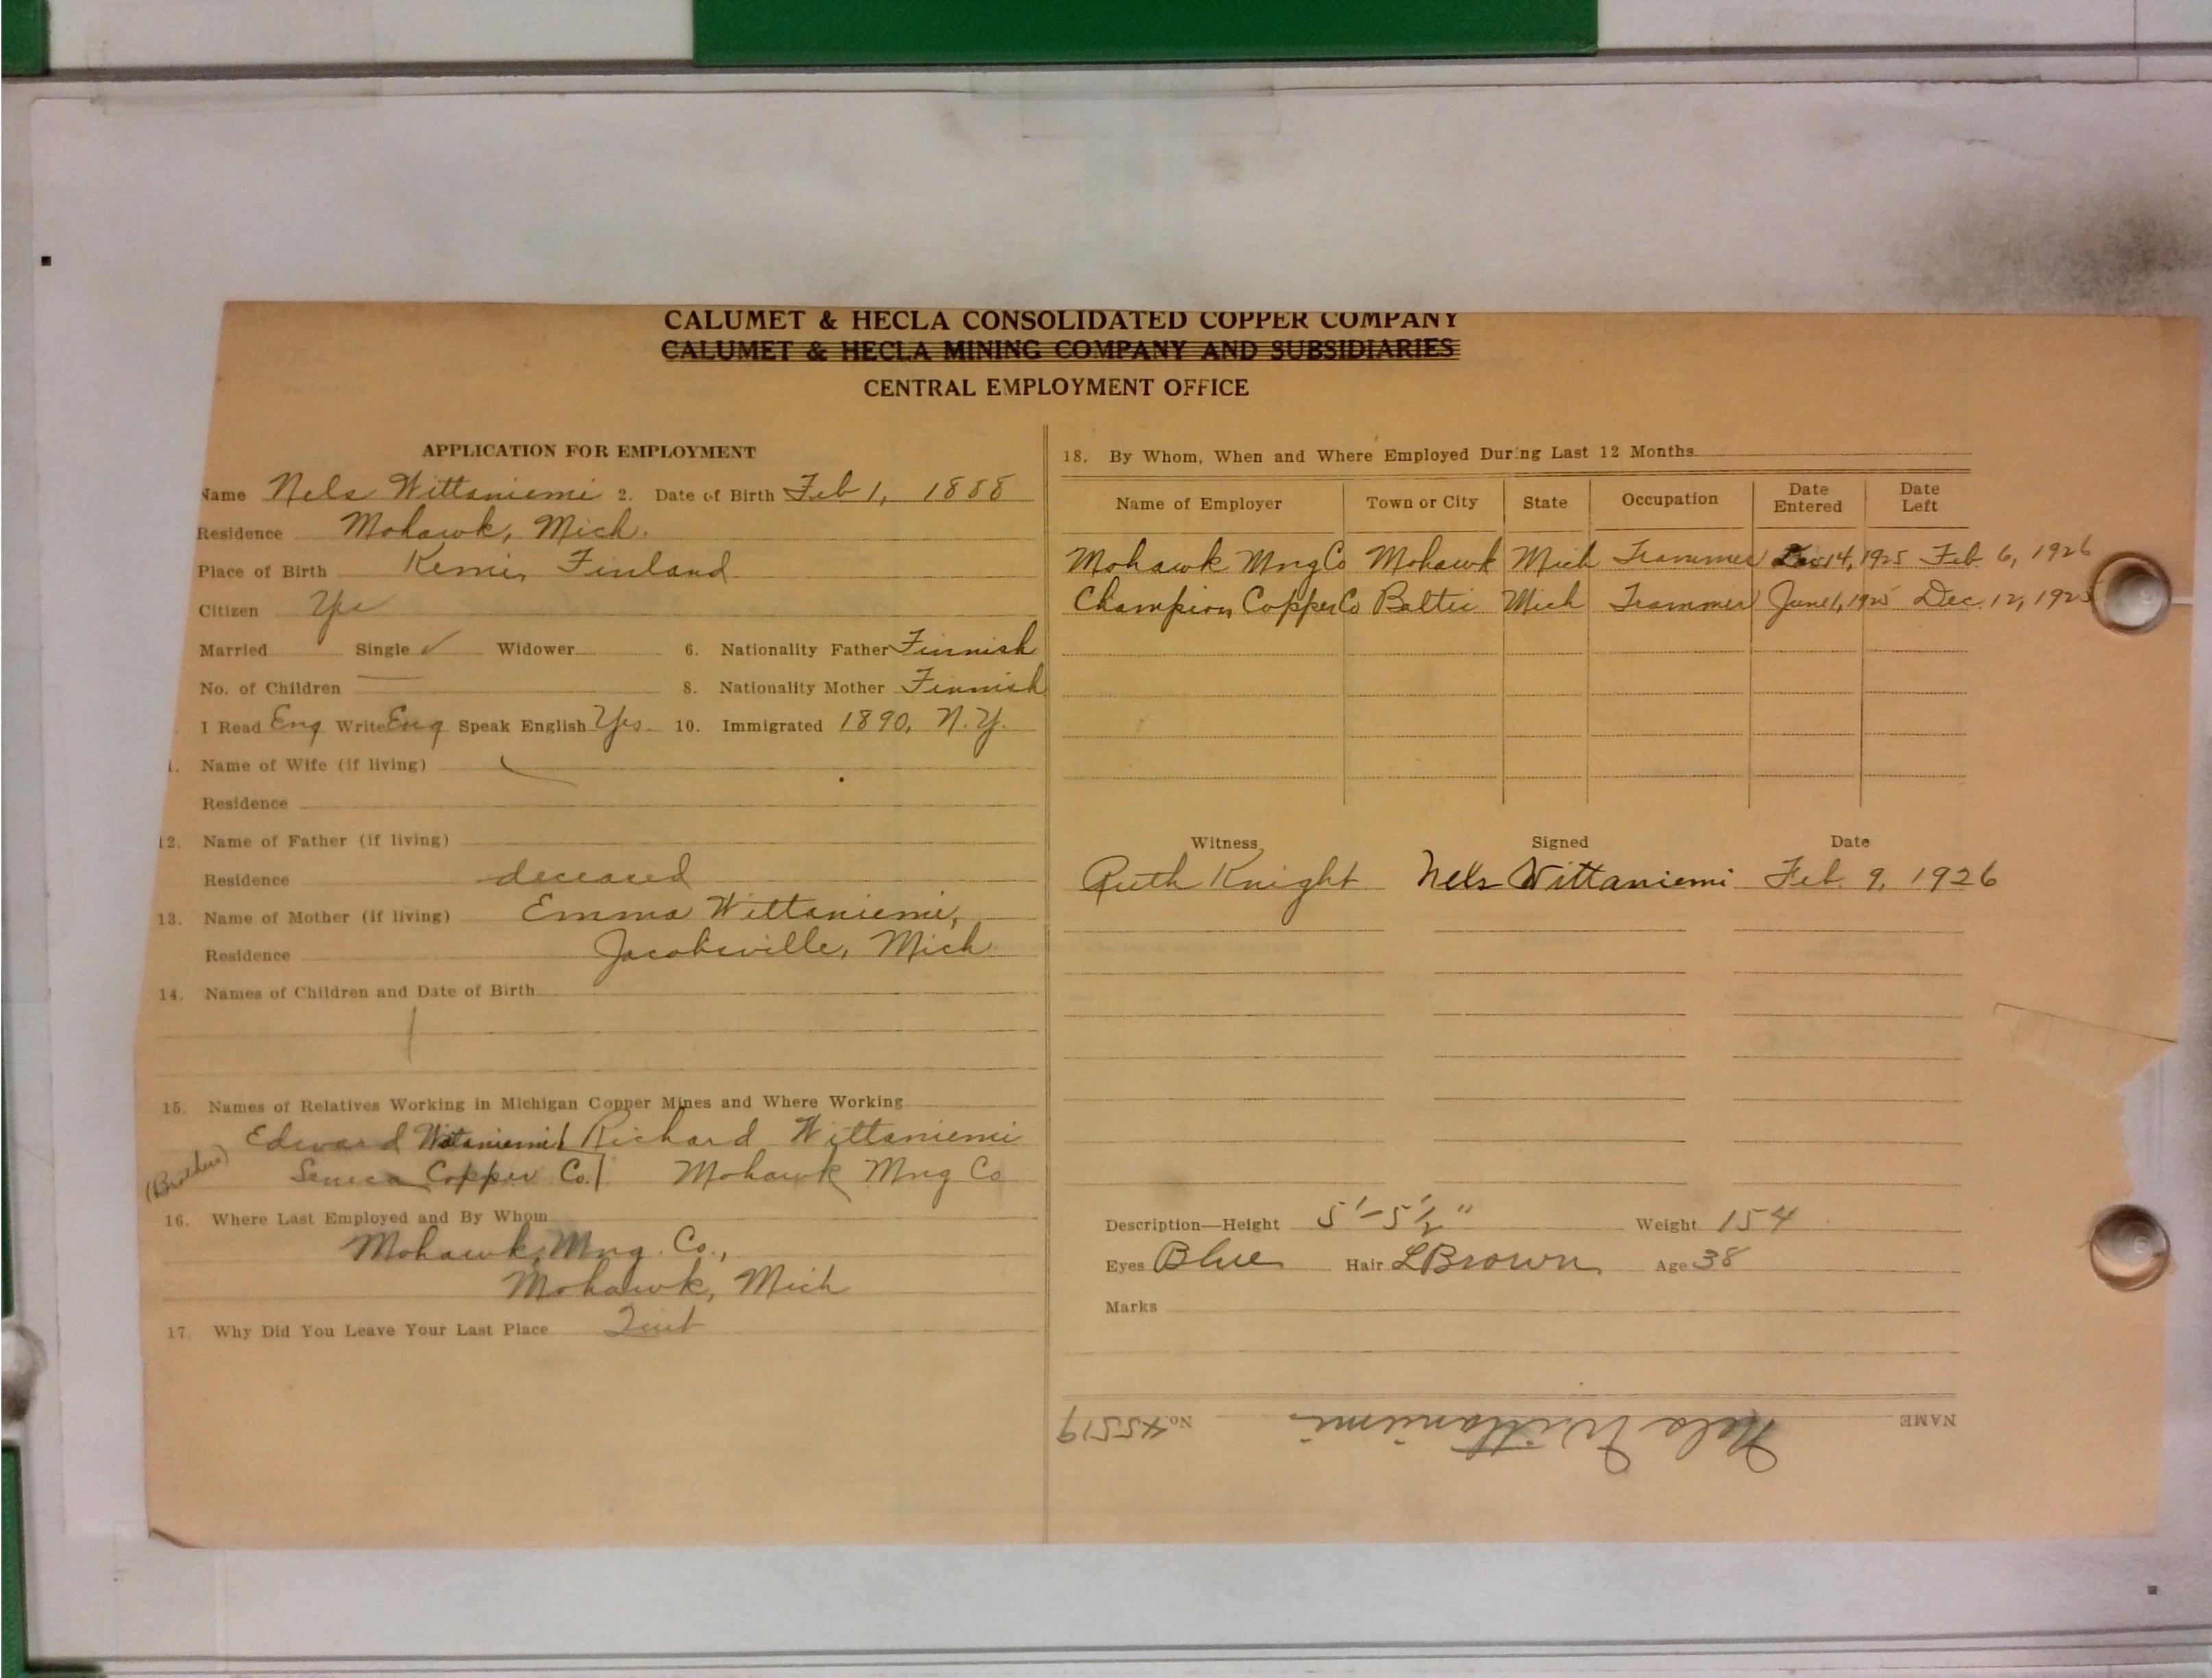 CALUMET & HECLA CONSOLIDATED COPPER COMPANY
CALUMET & HECLA MINING COMPANY AND SUBSIDIARIES
CENTRAL EMPLOYMENT OFFICE
APPLICATION FOR EMPLOYMENT
Name Nels Wittaniemi 2. Date of Birth Feb 1, 1888
Residence Mohawk, Mich.
Place of Birth Kemi, Finland
Citizen Yes
Married Single ✓ Widower 6. Nationality Father Finnish
No. of Children — 8. Nationality Mother Finnish
I Read Eng Write Eng Speak English Yes 10. Immigrated 1890, N.Y.
1. Name of Wife (if living)
Residence
12. Name of Father (if living)
Residence deceased
13. Name of Mother (if living) Emma Wittaniemi,
Residence Jacobsville, Mich
14. Names of Children and Date of Birth
15. Names of Relatives Working in Michigan Copper Mines and Where Working
Edward Wittaniemi Richard Wittaniemi
(Brothers) Seneca Copper Co. Mohawk Mng Co
16. Where Last Employed and By Whom
Mohawk Mng. Co.,
Mohawk, Mich
17. Why Did You Leave Your Last Place Quit
18. By Whom, When and Where Employed During Last 12 Months
Name of Employer Town or City State Occupation Date Entered Date Left
Mohawk Mng Co Mohawk Mich Trammer Dec 14, 1925 Feb. 6, 1926
Champion Copper Co Baltic Mich Trammer June 1, 1925 Dec. 12, 1925
Witness Signed Date
Ruth Knight Nels Wittaniemi Feb. 9, 1926
Description—Height 5'-5½" Weight 154
Eyes Blue Hair L Brown Age 38
Marks
NAME Nels Wittaniemi No. 45519